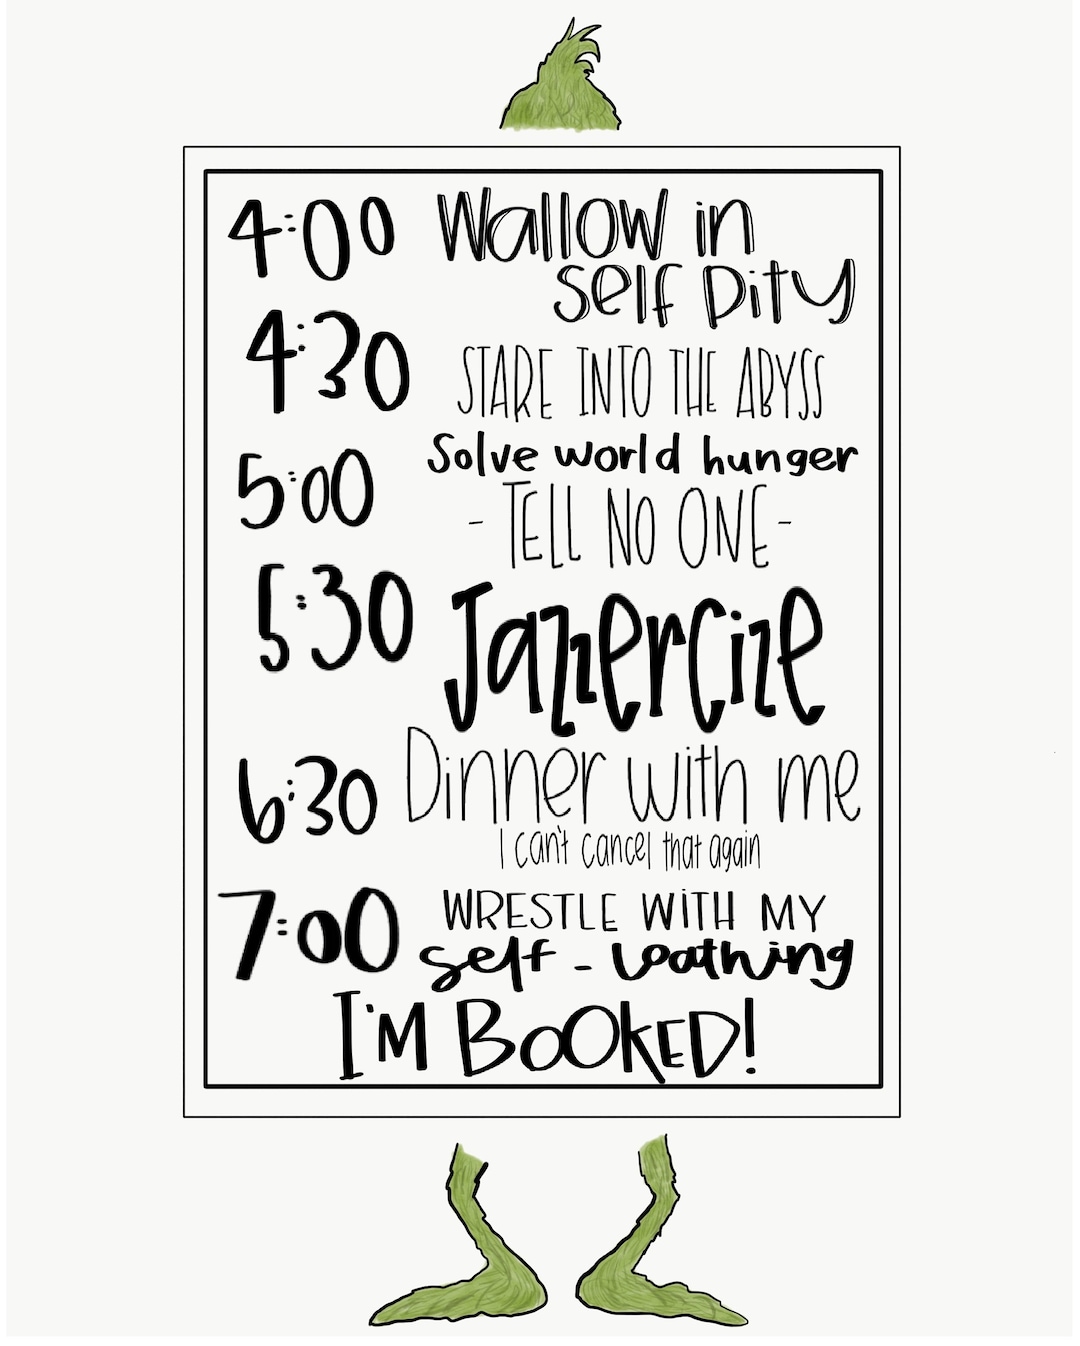 4:00 Wallow in
self pity
4:30 STARE INTO THE ABYSS
Solve world hunger
5:00 - TELL NO ONE -
5:30 Jazzercize
6:30 Dinner with me
I can't cancel that again
7:00 WRESTLE WITH MY
self - loathing
I'M BOOKED!